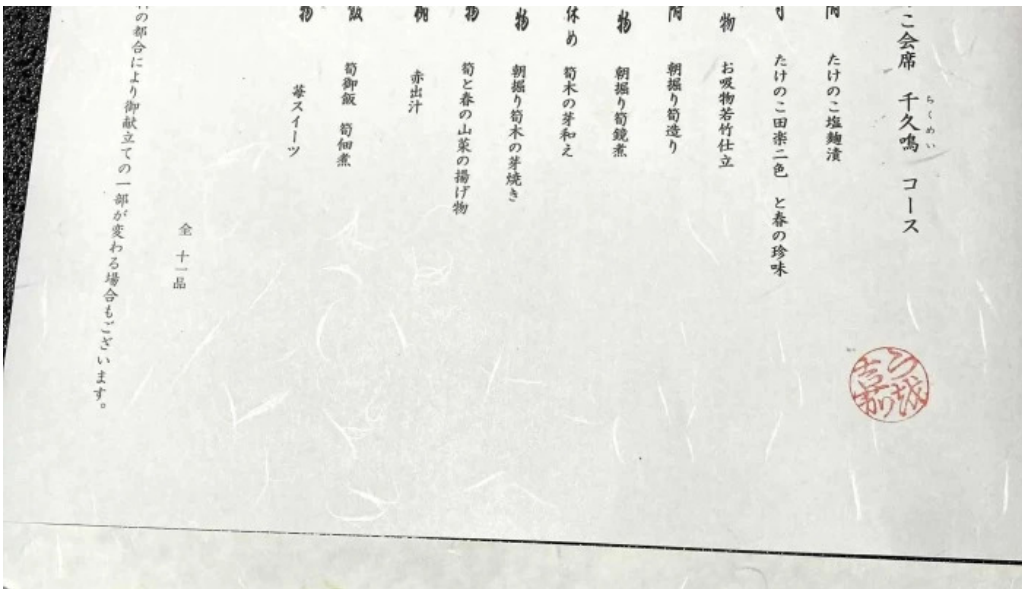 こ会席 千久鳴 コース
ちくめい
たけのこ塩麹漬
たけのこ田楽二色 と春の珍味
物 お吸物若竹仕立
朝掘り筍造り
物 朝掘り筍鏡煮
休め 筍木の芽和え
物 朝掘り筍木の芽焼き
物 筍と春の山菜の揚げ物
椀 赤出汁
飯 筍御飯 筍佃煮
物 苺スイーツ
全 十一品
の都合により御献立ての一部が変わる場合もございます。